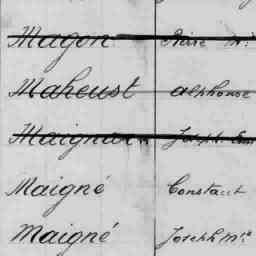 Magon Pierre Mie
Maheust Alphonse
Maignan Joseph
Maigné Constant
Maigné Joseph Mie